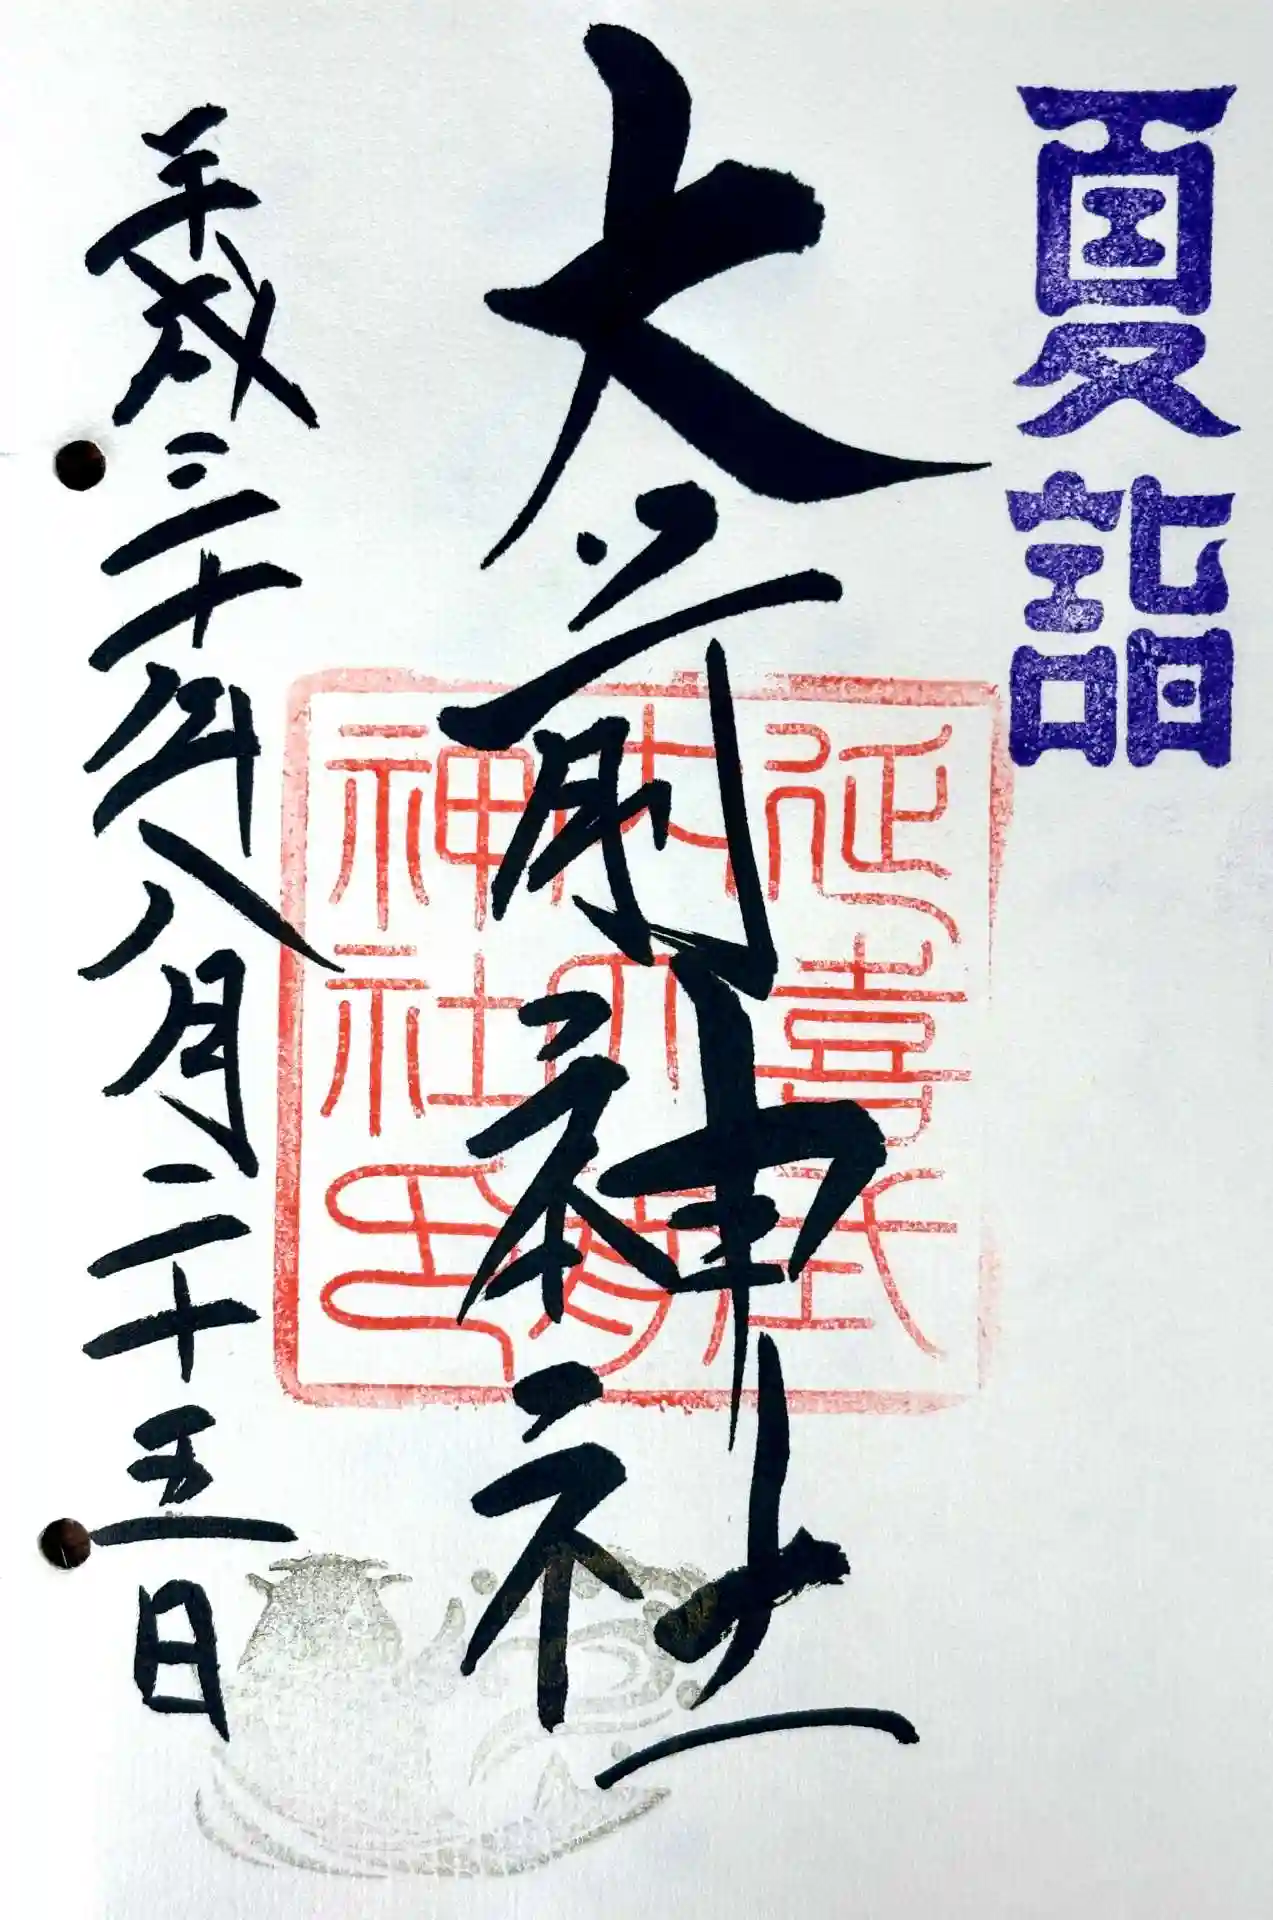 夏詣
大前神社
延喜式
内大前
神社印
平成三十年八月二十五日